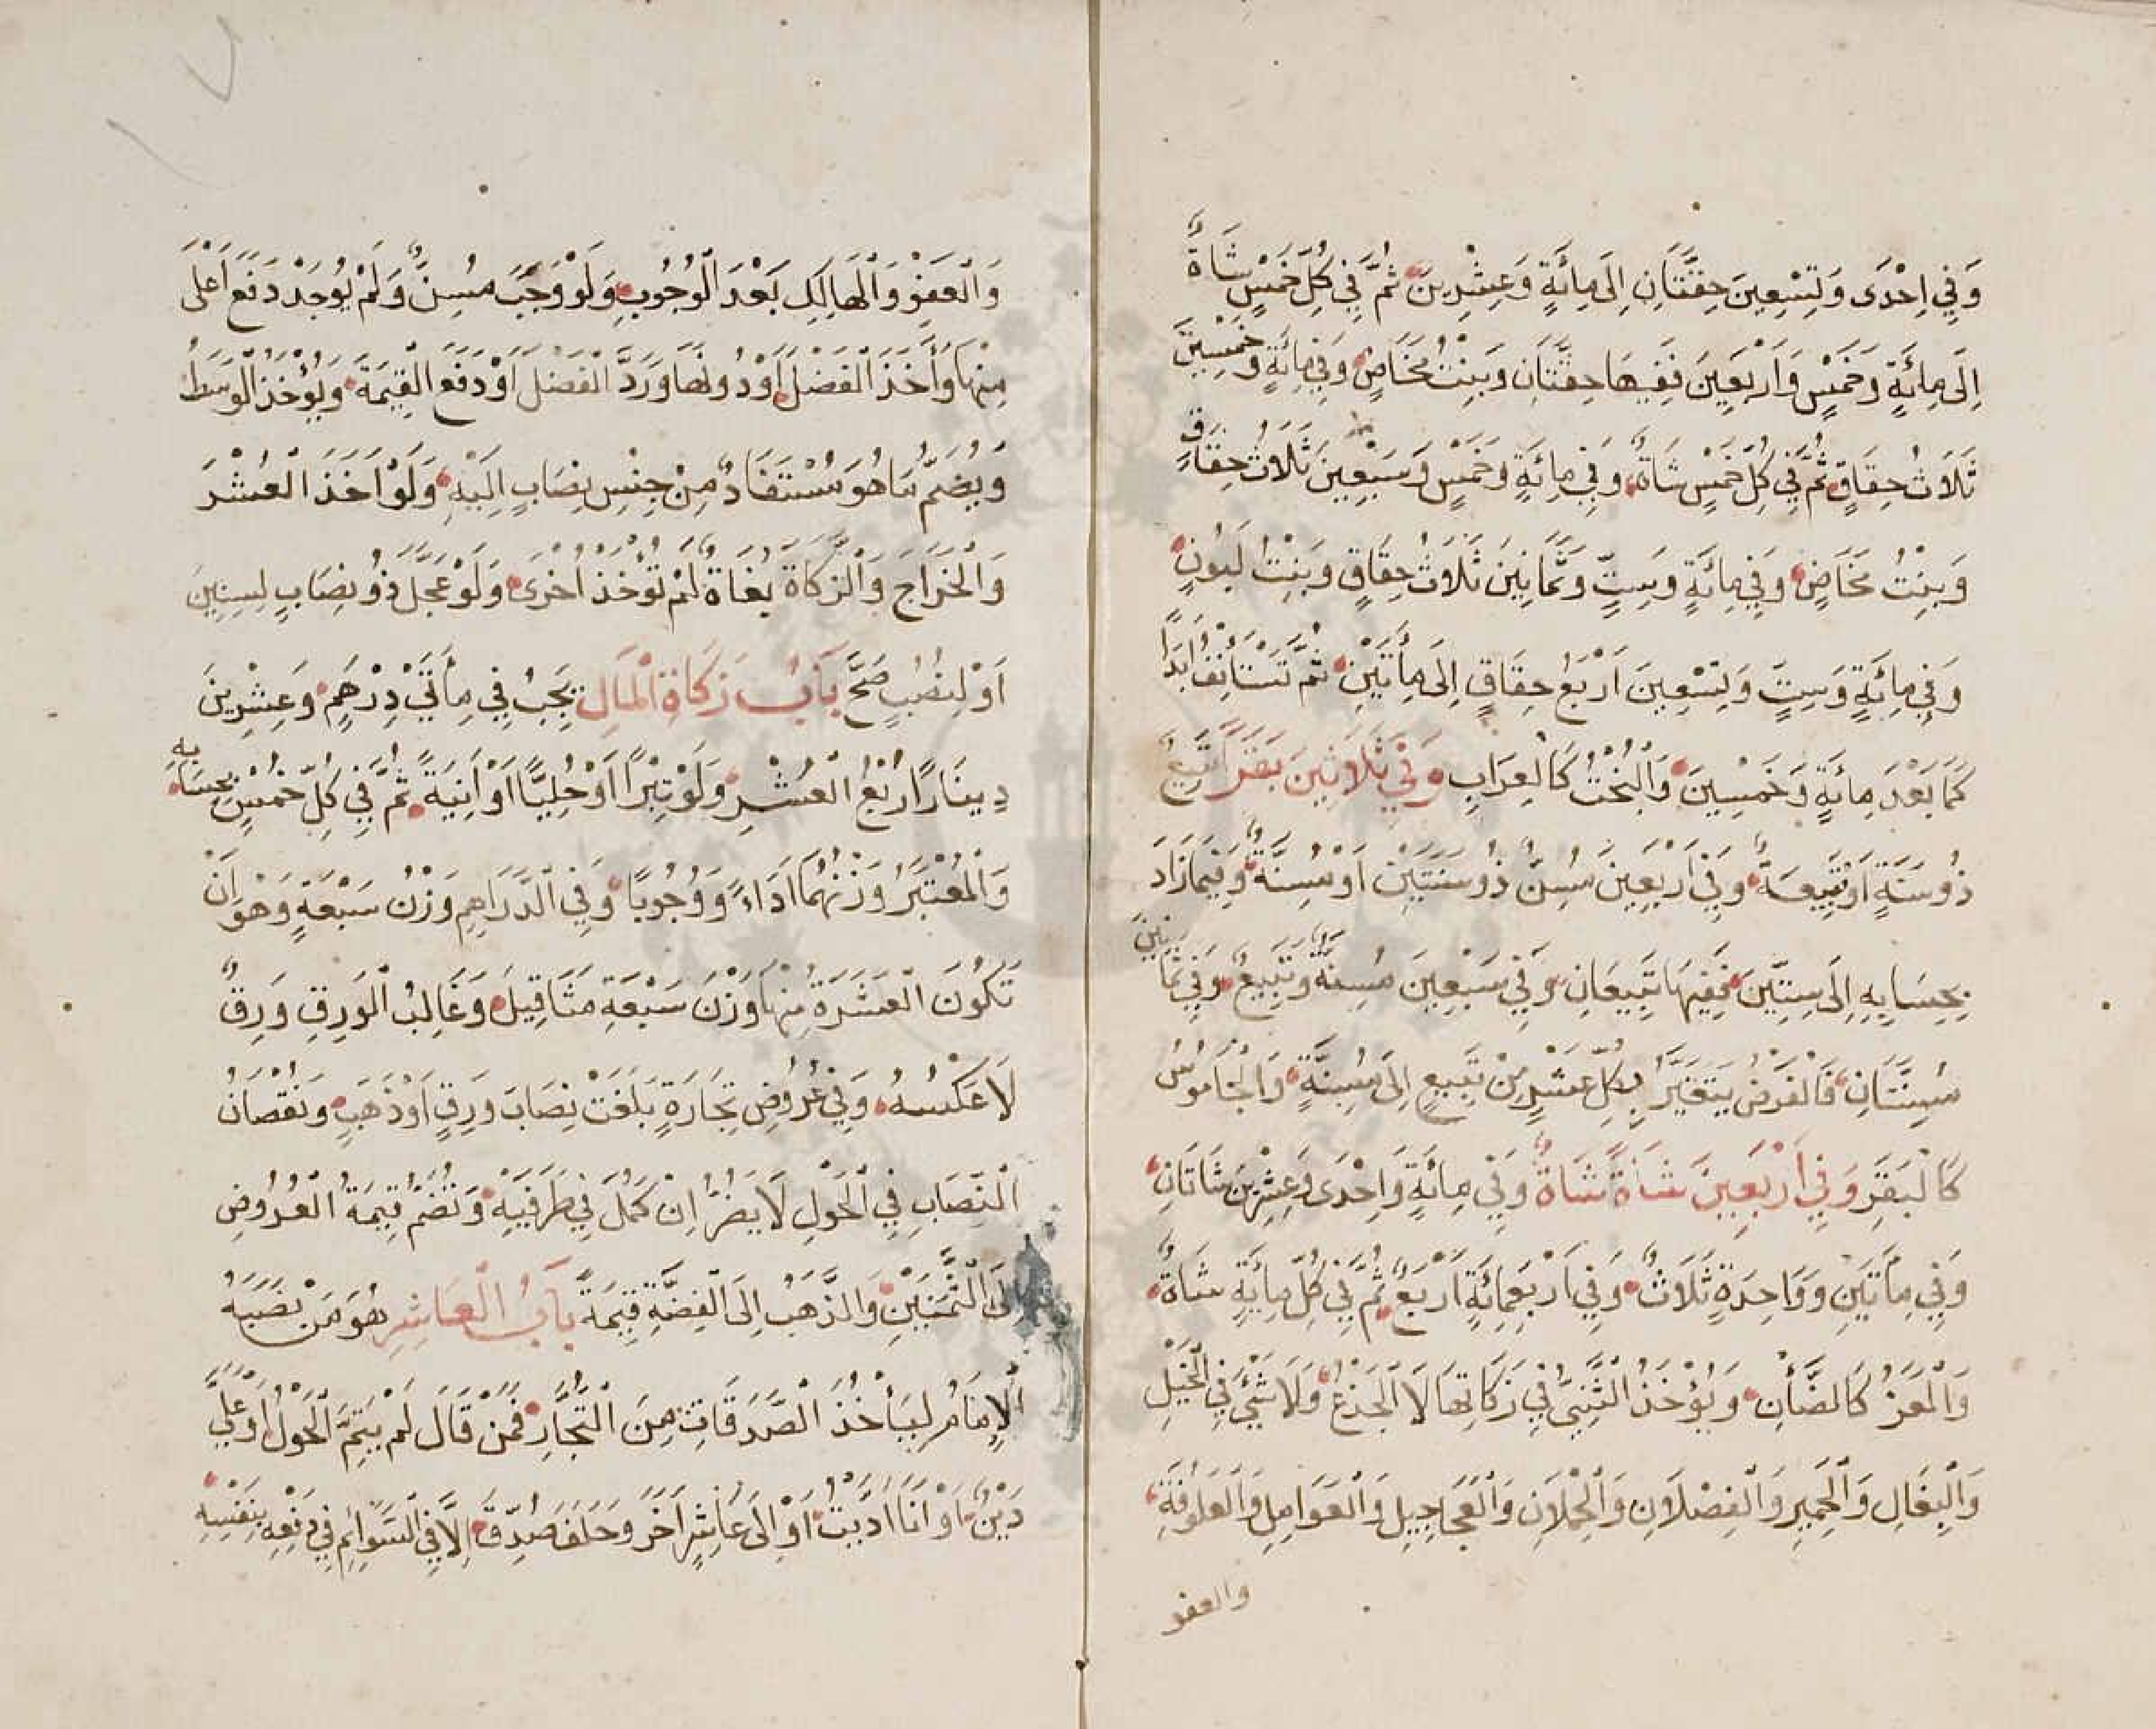 وَفِي اِحْدَى وَتِسْعِينَ حِقَّتَانِ اِلَى مِائَةٍ وَعِشْرِينَ ثُمَّ فِي كُلِّ خَمْسٍ شَاةٌ
اِلَى مِائَةٍ وَخَمْسٍ وَاَرْبَعِينَ فَفِيهَا حِقَّتَانِ وَبِنْتُ مَخَاضٍ وَفِي مِائَةٍ وَخَمْسِينَ
ثَلَاثُ حِقَاقٍ ثُمَّ فِي كُلِّ خَمْسٍ شَاةٌ وَفِي مِائَةٍ وَخَمْسٍ وَسَبْعِينَ ثَلَاثُ حِقَاقٍ
وَبِنْتُ مَخَاضٍ وَفِي مِائَةٍ وَسِتٍّ وَثَمَانِينَ ثَلَاثُ حِقَاقٍ وَبِنْتُ لَبُونٍ
وَفِي مِائَةٍ وَسِتٍّ وَتِسْعِينَ اَرْبَعُ حِقَاقٍ اِلَى مِأَتَيْنِ ثُمَّ تَسْتَأْنِفُ اَبَدًا
كَمَا بَعْدَ مِائَةٍ وَخَمْسِينَ وَالْبُخْتُ كَالْعِرَابِ وَفِي ثَلَاثِينَ بَقَرًا تَبِيعٌ
ذُو سَنَةٍ اَوْ تَبِيعَةٌ وَفِي اَرْبَعِينَ مُسِنٌّ ذُو سَنَتَيْنِ اَوْ مُسِنَّةٌ وَفِيمَا زَادَ
بِحِسَابِهِ اِلَى سِتِّينَ فَفِيهَا تَبِيعَانِ وَفِي سَبْعِينَ مُسِنَّةٌ وَتَبِيعٌ وَفِي ثَمَانِينَ
مُسِنَّتَانِ فَالْفَرْضُ يَتَغَيَّرُ بِكُلِّ عَشْرٍ مِنْ تَبِيعٍ اِلَى مُسِنَّةٍ وَالْجَامُوسُ
كَالْبَقَرِ وَفِي اَرْبَعِينَ شَاةً شَاةٌ وَفِي مِائَةٍ وَاِحْدَى وَعِشْرِينَ شَاتَانِ
وَفِي مِأَتَيْنِ وَوَاحِدَةٍ ثَلَاثٌ وَفِي اَرْبَعِمِائَةٍ اَرْبَعٌ ثُمَّ فِي كُلِّ مِائَةٍ شَاةٌ
وَالْمَعَزُ كَالضَّأْنِ وَيُؤْخَذُ الثَّنِيُّ فِي زَكَاتِهَا لَا الْجَذَعُ وَلَا شَيْءَ فِي الْخَيْلِ
وَالْبِغَالِ وَالْحَمِيرِ وَالْفِصْلَانِ وَالْحُمْلَانِ وَالْعَجَاجِيلِ وَالْعَوَامِلِ وَالْعَلُوفَةِ
والعفو
وَالْعَفْوِ وَالْهَالِكِ بَعْدَ الْوُجُوبِ وَلَوْ وَجَبَ مُسِنٌّ وَلَمْ يُوجَدْ دَفَعَ اَعْلَى
مِنْهَا وَأَخَذَ الْفَضْلَ اَوْ دُونَهَا وَرَدَّ الْفَضْلَ اَوْ دَفَعَ الْقِيمَةَ وَيُؤْخَذُ الْوَسَطُ
وَيُضَمُّ مَا هُوَ مُسْتَفَادٌ مِنْ جِنْسِ نِصَابٍ اِلَيْهِ وَلَوْ اَخَذَ الْعُشْرَ
وَالْخَرَاجَ وَالزَّكَاةَ بُغَاةٌ لَمْ تُؤْخَذْ اُخْرَى وَلَوْ عَجَّلَ ذُو نِصَابٍ لِسِنِينَ
اَوْ لِنُصُبٍ صَحَّ بَابُ زَكَاةِ الْمَالِ يَجِبُ فِي مِأَتَيْ دِرْهَمٍ وَعِشْرِينَ
دِينَارًا رُبْعُ الْعُشْرِ وَلَوْ تِبْرًا اَوْ حُلِيًّا اَوْ اٰنِيَةً ثُمَّ فِي كُلِّ خُمُسٍ بِحِسَابِهِ
وَالْمُعْتَبَرُ وَزْنُهُمَا اَدَاءً وَوُجُوبًا وَفِي الدَّرَاهِمِ وَزْنُ سَبْعَةٍ وَهُوَ اَنْ
تَكُونَ الْعَشَرَةُ مِنْهَا وَزْنَ سَبْعَةِ مَثَاقِيلَ وَغَالِبُ الْوَرِقِ وَرِقٌ
لَا عَكْسُهُ وَفِي عُرُوضِ تِجَارَةٍ بَلَغَتْ نِصَابَ وَرِقٍ اَوْ ذَهَبٍ وَنُقْصَانُ
النِّصَابِ فِي الْحَوْلِ لَا يَضُرُّ اِنْ كَمُلَ فِي طَرَفَيْهِ وَتُضَمُّ قِيمَةُ الْعُرُوضِ
اِلَى الثَّمَنَيْنِ وَالذَّهَبُ اِلَى الْفِضَّةِ قِيمَةً بَابُ الْعَاشِرِ هُوَ مَنْ نَصَبَهُ
الْاِمَامُ لِيَأْخُذَ الصَّدَقَاتِ مِنَ التُّجَّارِ فَمَنْ قَالَ لَمْ يَتِمَّ الْحَوْلُ اَوْ عَلَيَّ
دَيْنٌ اَوْ اَنَا اَدَّيْتُ اَوْ اِلَى عَاشِرٍ اٰخَرَ وَحَلَفَ صُدِّقَ اِلَّا فِي السَّوَائِمِ فِي دَفْعِهِ بِنَفْسِهِ